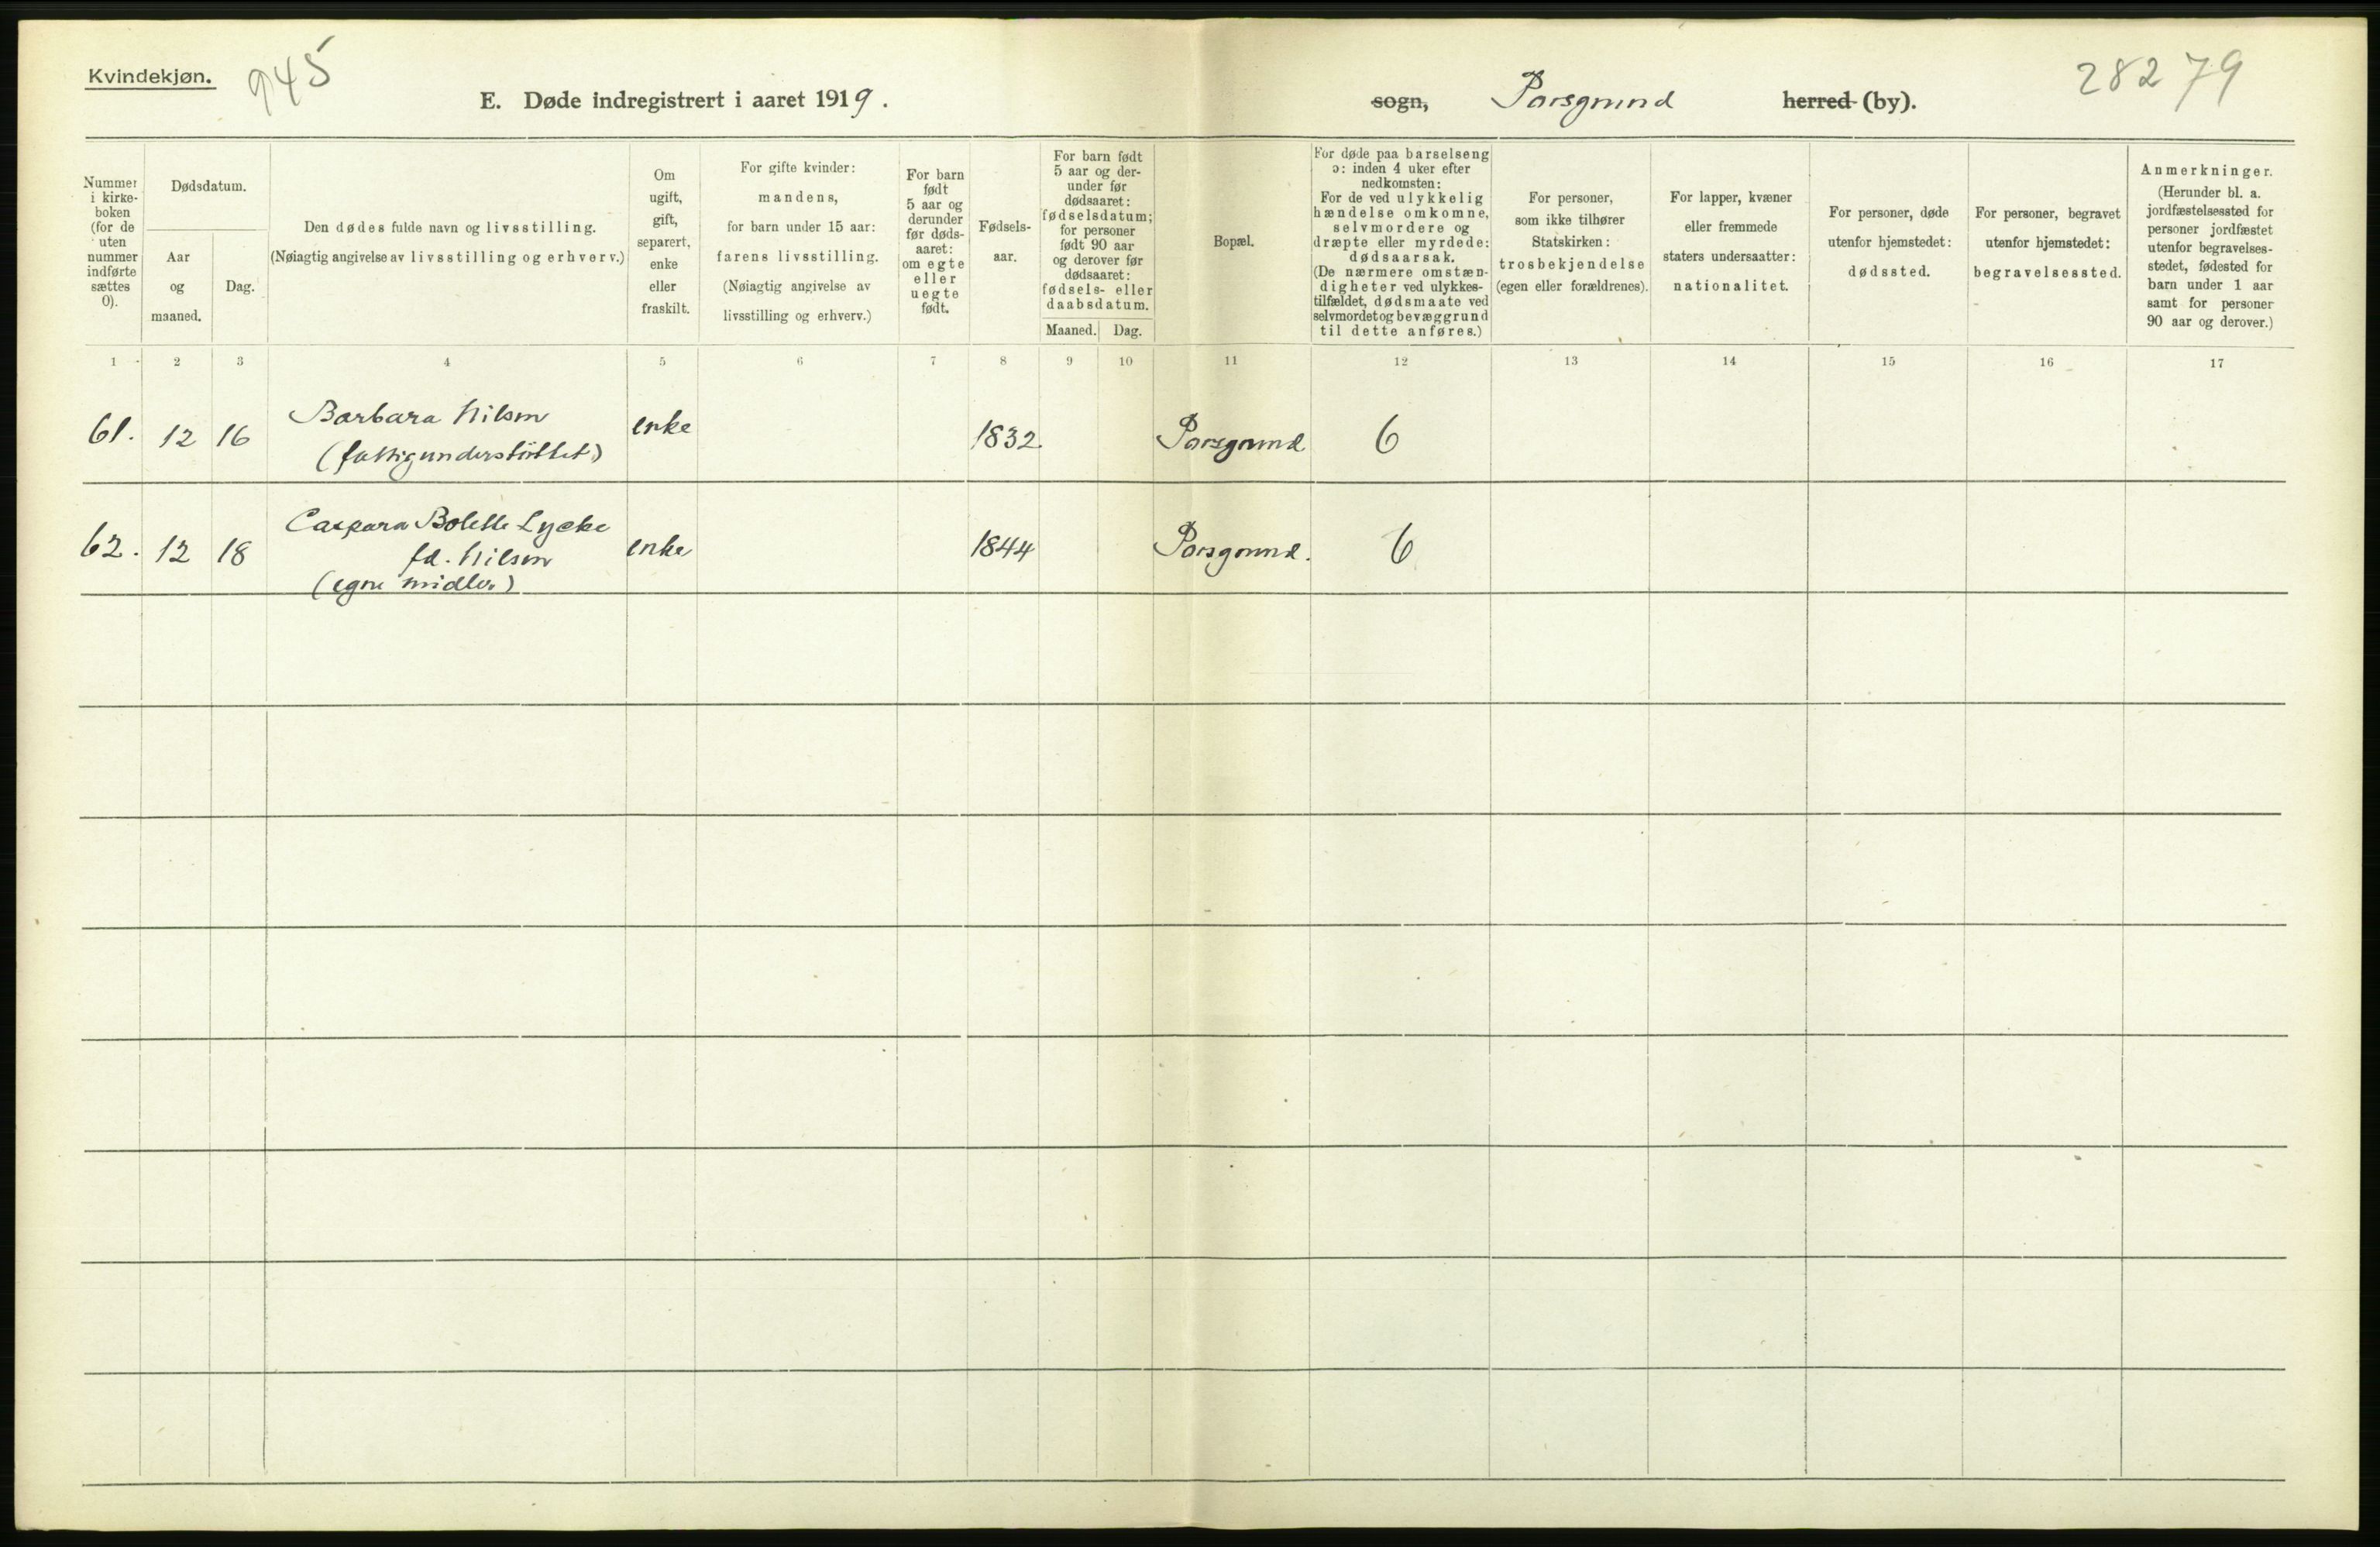 Kvindekjøn.
945
E. Døde indregistrert i aaret 1919.
sogn, Porsgrund herred (by).
28279
Nummer
i kirke-
boken
(for de
uten
nummer
indførte
sættes
0).
Dødsdatum.
Aar
og
maaned.
Dag.
Den dødes fulde navn og livsstilling.
(Nøiagtig angivelse av livsstilling og erhverv.)
Om
ugift,
gift,
separert,
enke
eller
fraskilt.
For gifte kvinder:
mandens,
for barn under 15 aar:
farens livsstilling.
(Nøiagtig angivelse av
livsstilling og erhverv.)
For barn
født
5 aar og
derunder
før døds-
aaret:
om egte
eller
uegte
født.
Fødsels-
aar.
For barn født
5 aar og der-
under før
dødsaaret:
fødselsdatum;
for personer
født 90 aar
og derover før
dødsaaret:
fødsels- eller
daabsdatum.
Maaned. Dag.
Bopæl.
For døde paa barselseng
ɔ: inden 4 uker efter
nedkomsten:
For de ved ulykkelig
hændelse omkomne,
selvmordere og
dræpte eller myrdede:
dødsaarsak.
(De nærmere omstæn-
digheter ved ulykkes-
tilfældet, dødsmaate ved
selvmordet og bevæggrund
til dette anføres.)
For personer,
som ikke tilhører
Statskirken:
trosbekjendelse
(egen eller forældrenes).
For lapper, kvæner
eller fremmede
staters undersaatter:
nationalitet.
For personer, døde
utenfor hjemstedet:
dødssted.
For personer, begravet
utenfor hjemstedet:
begravelsessted.
Anmerkninger.
(Herunder bl. a.
jordfæstelsessted for
personer jordfæstet
utenfor begravelses-
stedet, fødested for
barn under 1 aar
samt for personer
90 aar og derover.)
1 2 3 4 5 6 7 8 9 10 11 12 13 14 15 16 17
61. 12 16 Barbara Nilsen enke 1832. Porsgrund 6
(fattigunderstöttet)
62. 12 18 Caspara Bolette Lycke enke 1844 Porsgrund. 6
fd. Nilsen
(egne midler)